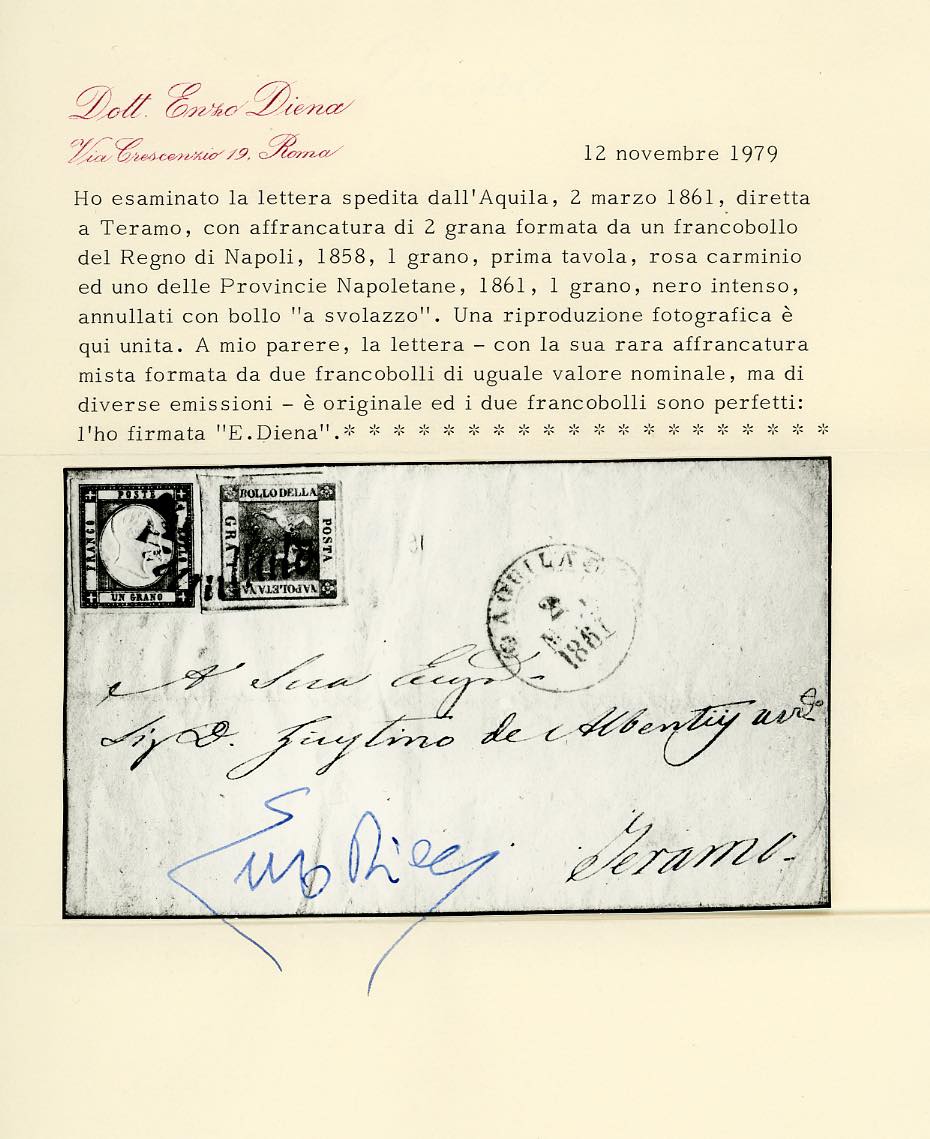 Dott. Enzo Diena
Via Crescenzio 19, Roma
12 novembre 1979
Ho esaminato la lettera spedita dall'Aquila, 2 marzo 1861, diretta
a Teramo, con affrancatura di 2 grana formata da un francobollo
del Regno di Napoli, 1858, 1 grano, prima tavola, rosa carminio
ed uno delle Provincie Napoletane, 1861, 1 grano, nero intenso,
annullati con bollo "a svolazzo". Una riproduzione fotografica è
qui unita. A mio parere, la lettera - con la sua rara affrancatura
mista formata da due francobolli di uguale valore nominale, ma di
diverse emissioni - è originale ed i due francobolli sono perfetti:
l'ho firmata "E.Diena".* * * * * * * * * * * * * * * * * * * *
FRANCO
POSTE
BOLLO
UN GRANO
BOLLO DELLA
POSTA
NAPOLETANA
AQUILA
2
1861
A Sua
Sig D. de
Teramo